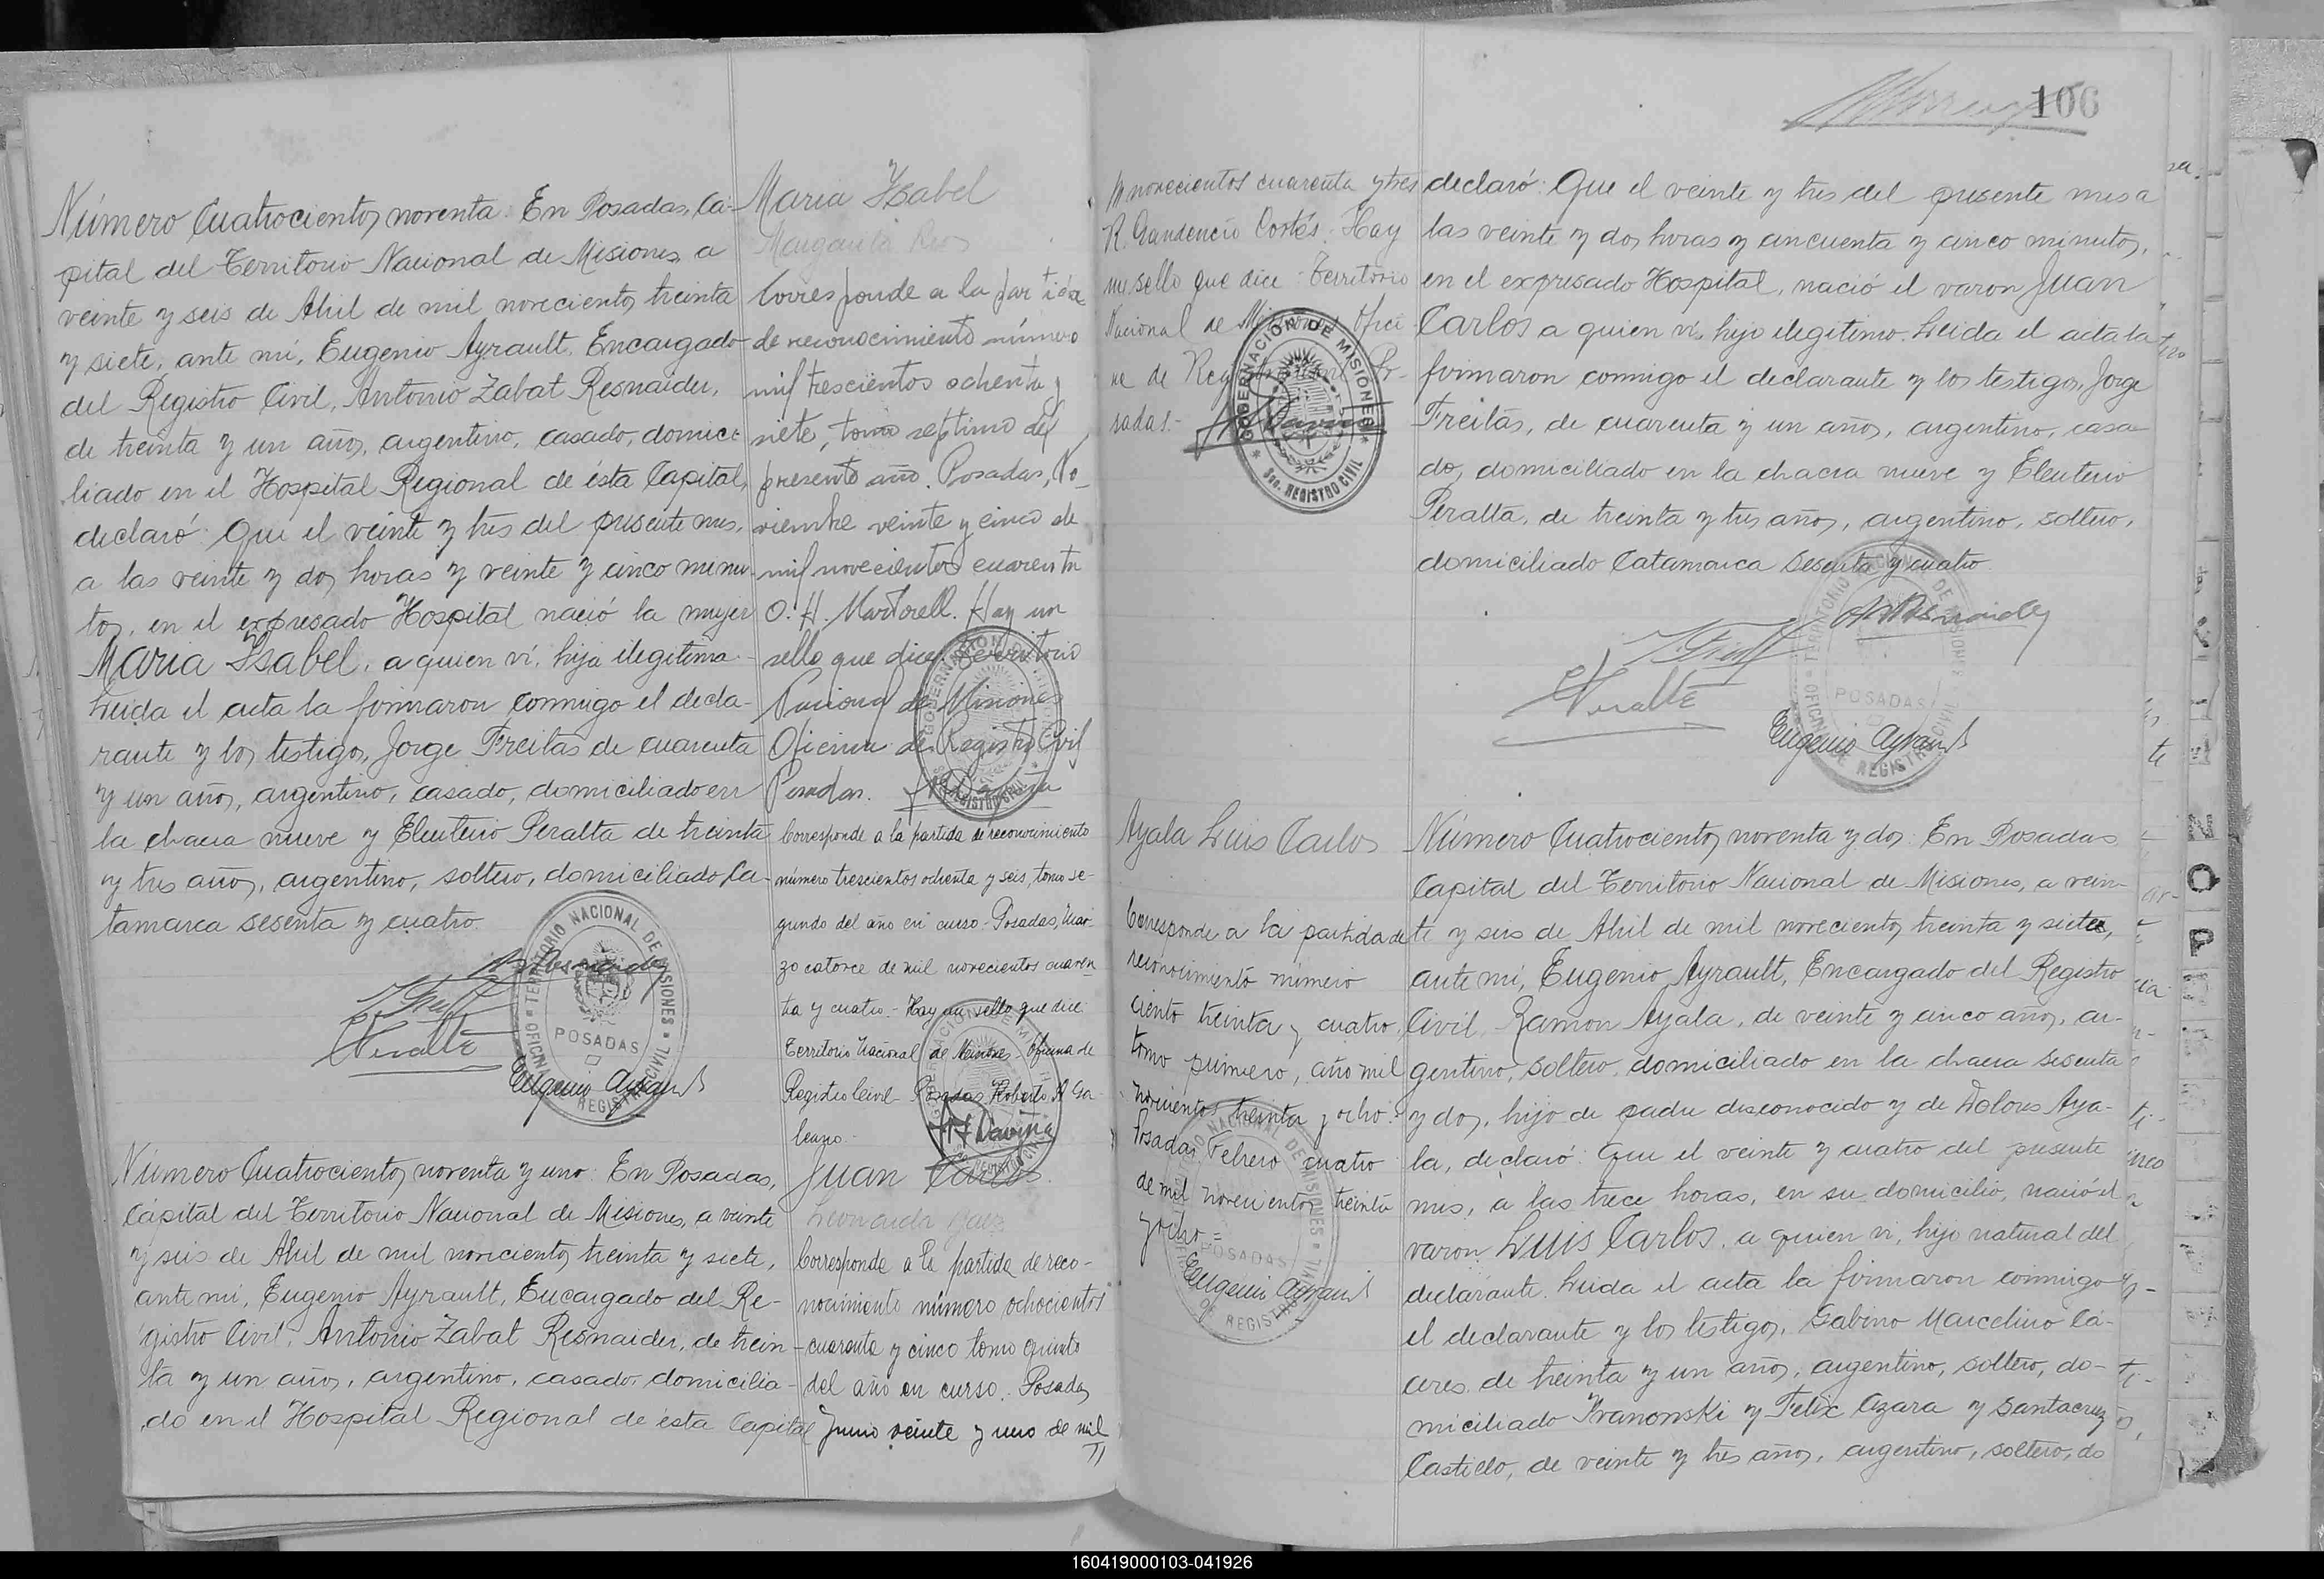 106
Número Cuatrocientos noventa. En Posadas, Ca-
pital del Territorio Nacional de Misiones, a
veinte y seis de Abril de mil novecientos treinta
y siete, ante mí, Eugenio Ayrault, Encargado
del Registro Civil, Antonio Zabat Resnaider,
de treinta y un años, argentino, casado, domici-
liado en el Hospital Regional de ésta Capital,
declaró: Que el veinte y tres del presente mes,
a las veinte y dos horas y veinte y cinco minu-
tos, en el expresado Hospital nació la mujer
Maria Isabel, a quien ví, hija ilegítima.
Leida el acta la firmaron conmigo el decla-
rante y los testigos, Jorge Freitas de cuarenta
y un años, argentino, casado, domiciliado en
la chacra nueve y Eleuterio Peralta de treinta
y tres años, argentino, soltero, domiciliado Ca-
tamarca sesenta y cuatro.
TERRITORIO NACIONAL DE MISIONES
POSADAS
OFICINA DE REGISTRO CIVIL
Eugenio Ayrault
Maria Isabel
Margarita Rios
Corresponde a la partida
de reconocimiento número
mil trescientos ochenta y
siete, tomo septimo del
presente año. Posadas, No-
viembre veinte y cinco de
mil novecientos cuarenta
O. H. Martorell. Hay un
sello que dice: Territorio
Nacional de Misiones
Oficina de Registro Civil
Posadas.
Corresponde a la partida de reconocimiento
número trescientos ochenta y seis, tomo se-
gundo del año en curso.- Posadas, Mar-
zo catorce de mil novecientos cuaren
ta y cuatro.- Hay un sello que dice:
Territorio Nacional de Misiones - Oficina de
Registro Civil - Posadas Roberto A
Número Cuatrocientos noventa y uno: En Posadas,
Capital del Territorio Nacional de Misiones, a veinte
y seis de Abril de mil novecientos treinta y siete,
ante mí, Eugenio Ayrault, Encargado del Re-
gistro Civil, Antonio Zabat Resnaider, de trein-
ta y un años, argentino, casado, domicilia-
do en el Hospital Regional de ésta Capital
Juan Carlos
Leonarda Baez
Corresponde a la partida de reco-
nocimiento número ochocientos
cuarenta y cinco tomo quinto
del año en curso. Posadas
Junio veinte y uno de mil
novecientos cuarenta y tres
R. Gaudencio Cortés. Hay
un sello que dice: Territorio
Nacional de Misiones Ofici
na de Registro Civil Po-
sadas.-
GOBERNACIÓN DE MISIONES
Sec. REGISTRO CIVIL
declaró: Que el veinte y tres del presente mes a
las veinte y dos horas y cincuenta y cinco minutos,
en el expresado Hospital, nació el varon Juan
Carlos a quien ví, hijo ilegítimo. Leida el acta la
firmaron conmigo el declarante y los testigos, Jorge
Freitas, de cuarenta y un años, argentino, casa-
do, domiciliado en la chacra nueve y Eleuterio
Peralta, de treinta y tres años, argentino, soltero,
domiciliado Catamarca sesenta y cuatro.
TERRITORIO NACIONAL DE MISIONES
POSADAS
OFICINA DE REGISTRO CIVIL
Eugenio Ayrault
Ayala Luis Carlos
Corresponde a la partida de
reconocimiento número
ciento treinta y cuatro,
tomo primero, año mil
novecientos treinta y ocho.-
Posadas, Febrero cuatro
de mil novecientos treinta
y ocho =
Eugenio Ayrault
Número Cuatrocientos noventa y dos: En Posadas
Capital del Territorio Nacional de Misiones, a vein-
te y seis de Abril de mil novecientos treinta y siete,
ante mí, Eugenio Ayrault, Encargado del Registro
Civil, Ramon Ayala, de veinte y cinco años, ar-
gentino, soltero, domiciliado en la chacra sesenta
y dos, hijo de padre desconocido y de Dolores Aya-
la, declaró: Que el veinte y cuatro del presente
mes, a las trece horas, en su domicilio, nació el
varon Luis Carlos, a quien ví, hijo natural del
declarante. Leida el acta la firmaron conmigo
el declarante y los testigos, Gabino Marcelino Cá-
ceres, de treinta y un años, argentino, soltero, do-
miciliado Ivanonski y Felix Azara y Santacruz
Castillo, de veinte y tres años, argentino, soltero, do
160419000103-041926